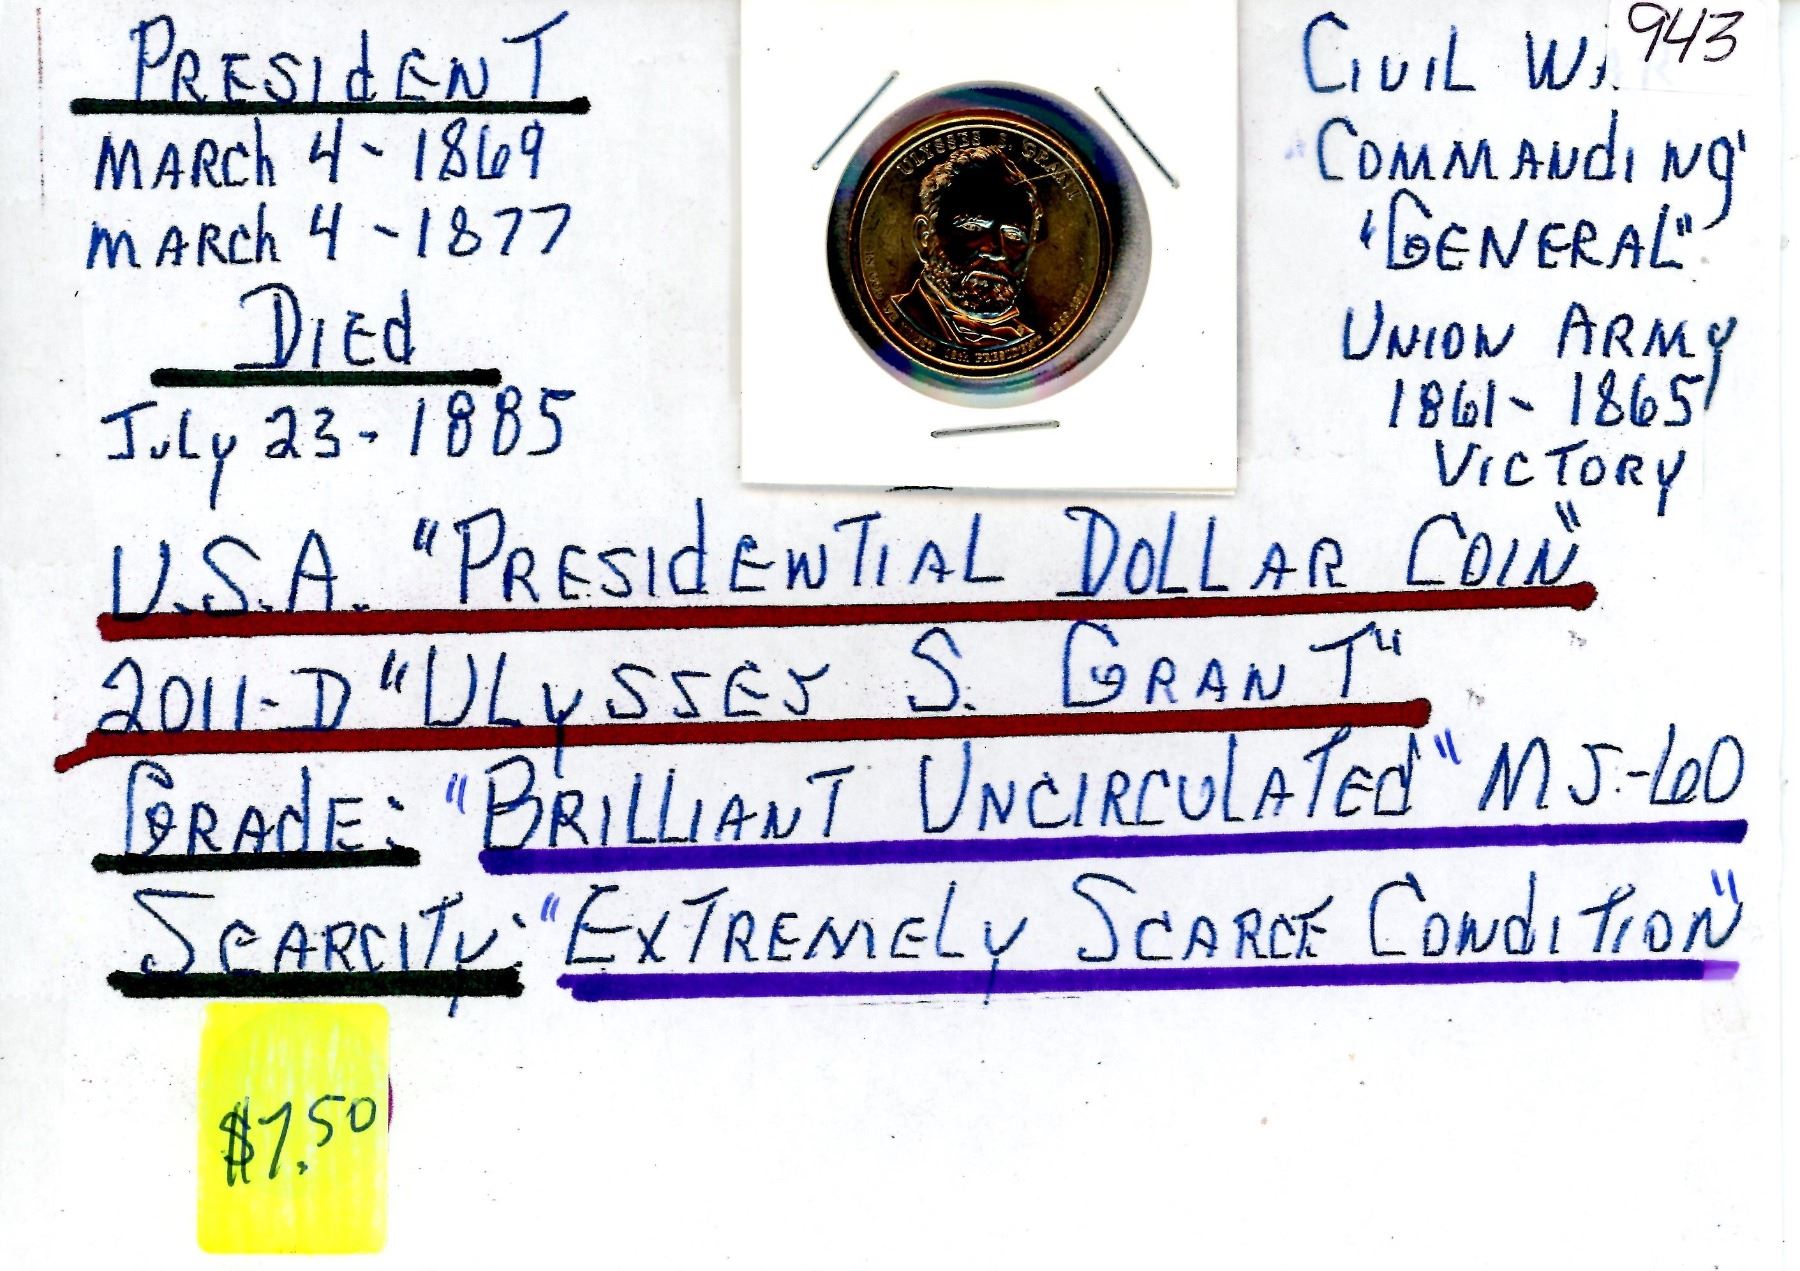 PRESIdENT
MARCh 4 - 1869
MARCh 4 - 1877
DIEd
July 23 - 1885
943
CIVIL WAR
COMMANdING
"GENERAL"
UNION ARMY
1861 - 1865
VICTORY
ULYSSES S. GRANT
IN GOD WE TRUST 18th PRESIDENT 1869-1877
U.S.A. "PRESIdENTIAL DOLLAR COIN"
2011-D "ULySSES S. GRANT"
GRAdE: "BRILLIANT UNCIRCULATEd" MS-60
SCARCITy: "EXTREMELy SCARCE CONdITION"
$7.50